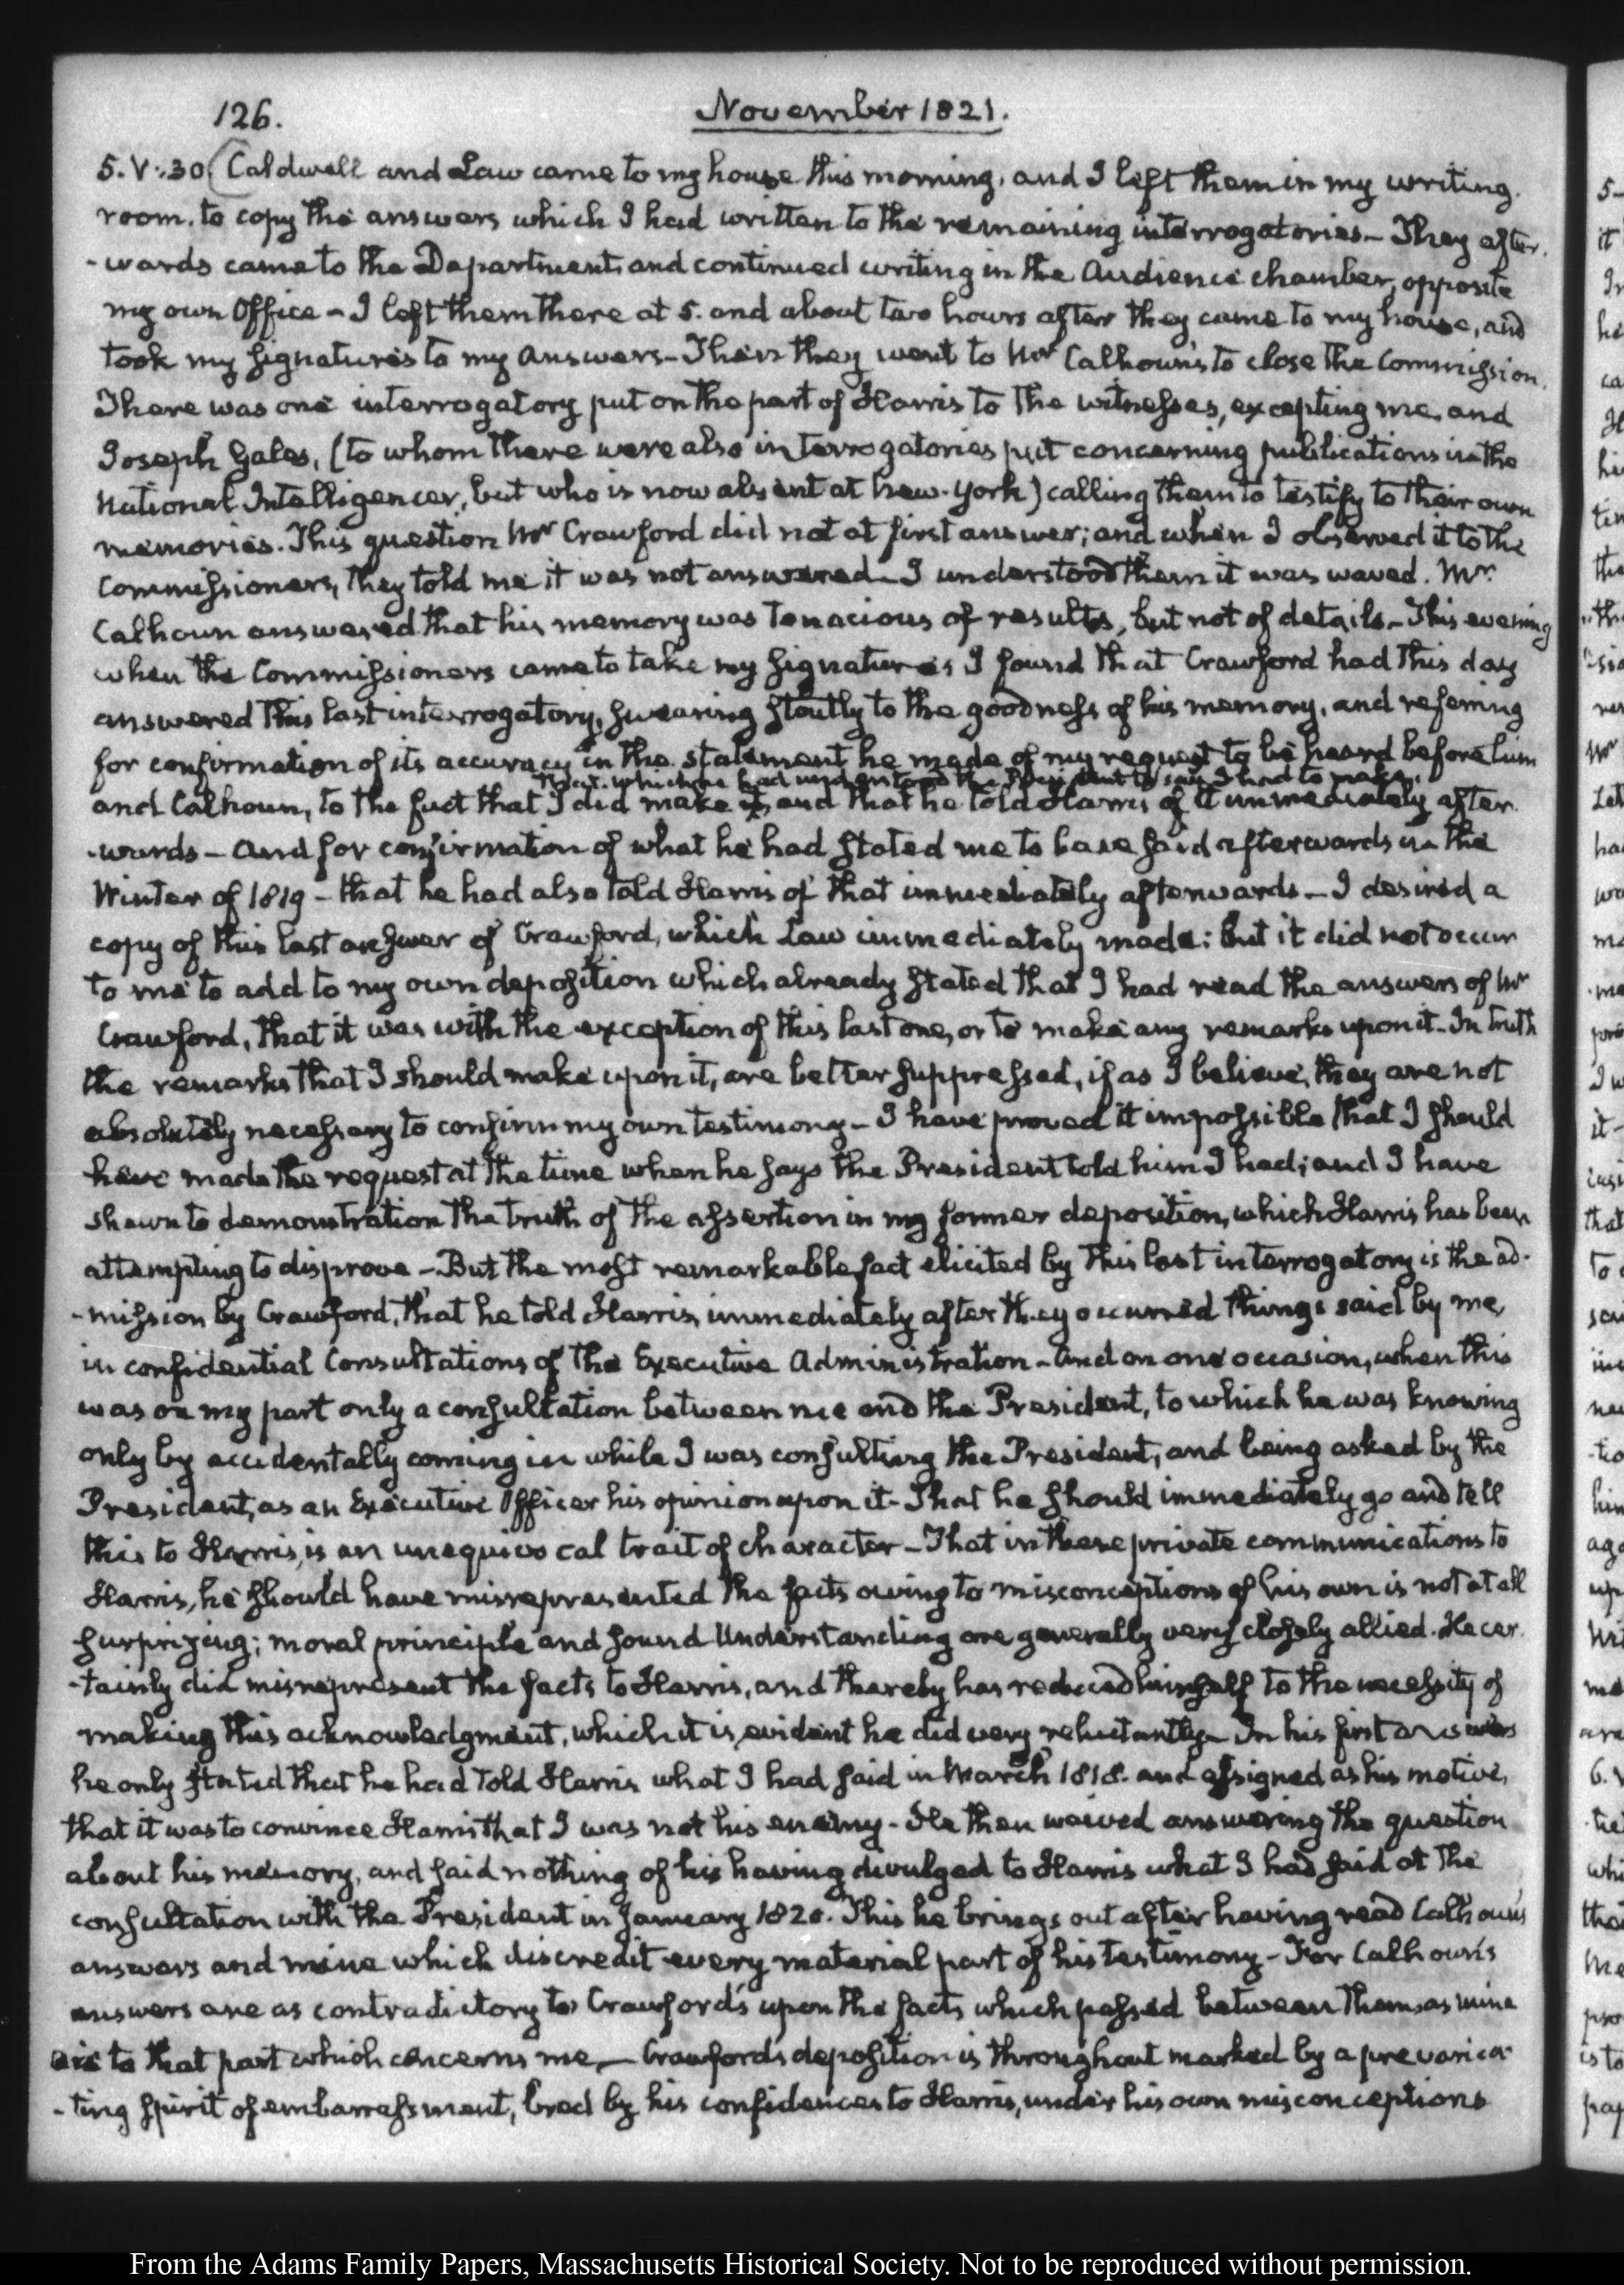 126.
November 1821.
5. V:30. Caldwell and Law came to my house this morning, and I left them in my writing
room, to copy the answers which I had written to the remaining interrogatories – They after
-wards came to the Department and continued writing in the Audience chamber, opposite
my own Office – I left them there at 5. and about two hours after they came to my house, and
took my signatures to my answers – Then they went to Mr Calhoun's to close the Commission.
There was one interrogatory put on the part of Harris to the witnesses, excepting me, and
Joseph Gales, (to whom there were also interrogatories put concerning publications in the
National Intelligencer, but who is now absent at New-York) calling them to testify to their own
memories. This question Mr Crawford did not at first answer; and when I observed it to the
Commissioners, they told me it was not answered – I understood them it was waved. Mr
Calhoun answered that his memory was tenacious of results, but not of details – This evening
when the Commissioners came to take my signatures I found that Crawford had this day
answered this last interrogatory, swearing stoutly to the goodness of his memory, and referring
for confirmation of its accuracy in the statement he made of my request to be heard before him
that which he had understood the President to say I had to make,
and Calhoun, to the fact that I did make it, and that he told Harris of it immediately after
-wards – And for confirmation of what he had stated me to have said afterwards in the
Winter of 1819 – that he had also told Harris of that immediately afterwards – I desired a
copy of this last answer of Crawford, which Law immediately made: but it did not occur
to me to add to my own deposition which already stated that I had read the answers of Mr
Crawford, that it was with the exception of this last one, or to make any remarks upon it – In truth
the remarks that I should make upon it, are better suppressed, if as I believe, they are not
absolutely necessary to confirm my own testimony – I have proved it impossible that I should
have made the request at the time when he says the President told him I had; and I have
shewn to demonstration the truth of the assertion in my former deposition, which Harris has been
attempting to disprove – But the most remarkable fact elicited by this last interrogatory is the ad-
-mission by Crawford, that he told Harris, immediately after they occurred things said by me,
in confidential Consultations of the Executive Administration – And on one occasion, when this
was on my part only a consultation between me and the President, to which he was knowing
only by accidentally coming in while I was consulting the President, and being asked by the
President, as an Executive Officer his opinion upon it – That he should immediately go and tell
this to Harris, is an unequivocal trait of character – That in these private communications to
Harris, he should have misrepresented the facts owing to misconceptions of his own is not at all
surprizing; moral principle and sound Understanding are generally very closely allied. He cer
-tainly did misrepresent the facts to Harris, and thereby has reduced himself to the necessity of
making this acknowledgment, which it is evident he did very reluctantly – In his first answers
he only stated that he had told Harris what I had said in March 1818. and assigned as his motive,
that it was to convince Harris that I was not his enemy – He then waived answering the question
about his memory, and said nothing of his having divulged to Harris what I had said at the
consultation with the President in January 1820. This he brings out after having read Calhoun's
answers and mine which discredit every material part of his testimony – For Calhoun's
answers are as contradictory to Crawford's upon the facts which passed between them, as mine
are to that part which concerns me – Crawford's deposition is throughout marked by a prevarica-
-ting spirit of embarrassment, bred by his confidences to Harris, under his own misconceptions
From the Adams Family Papers, Massachusetts Historical Society. Not to be reproduced without permission.